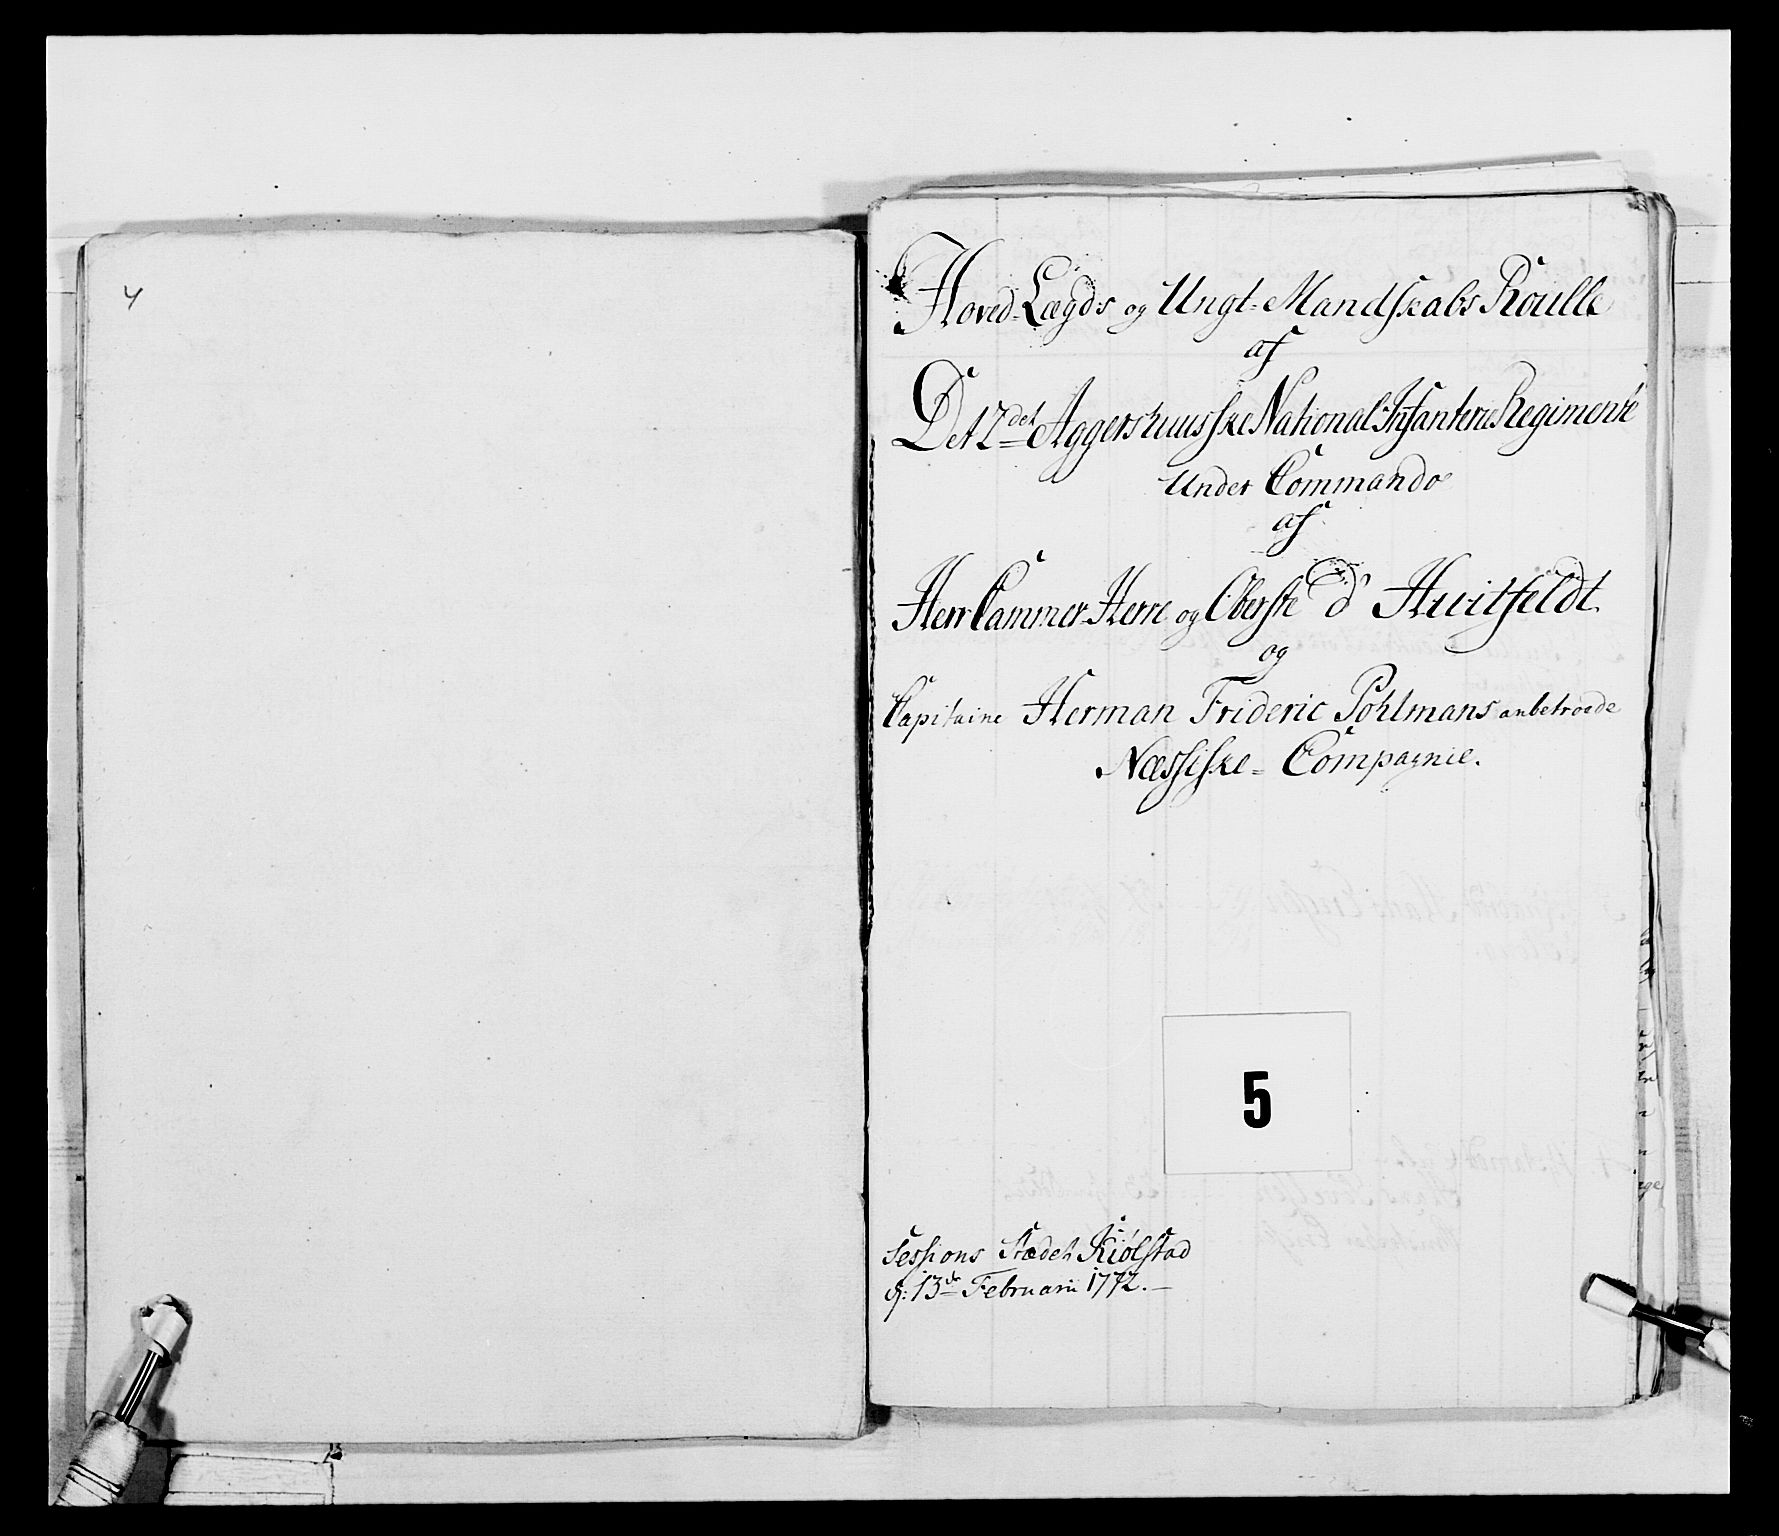 4
Hoved-Lægds og Ungt-Mandskabs Roulle
af
Det 2det Aggershuusske National-Infanterie Regimente
Under Commando
af
Herr Cammer-Herre og Oberste d' Huitfeldt.
og
Capitaine Herman Frideric Pohlmans anbetroede
Næssiske-Compagnie.
5
Sessions Stædet Kiølstad
d: 13de Februarii 1772.